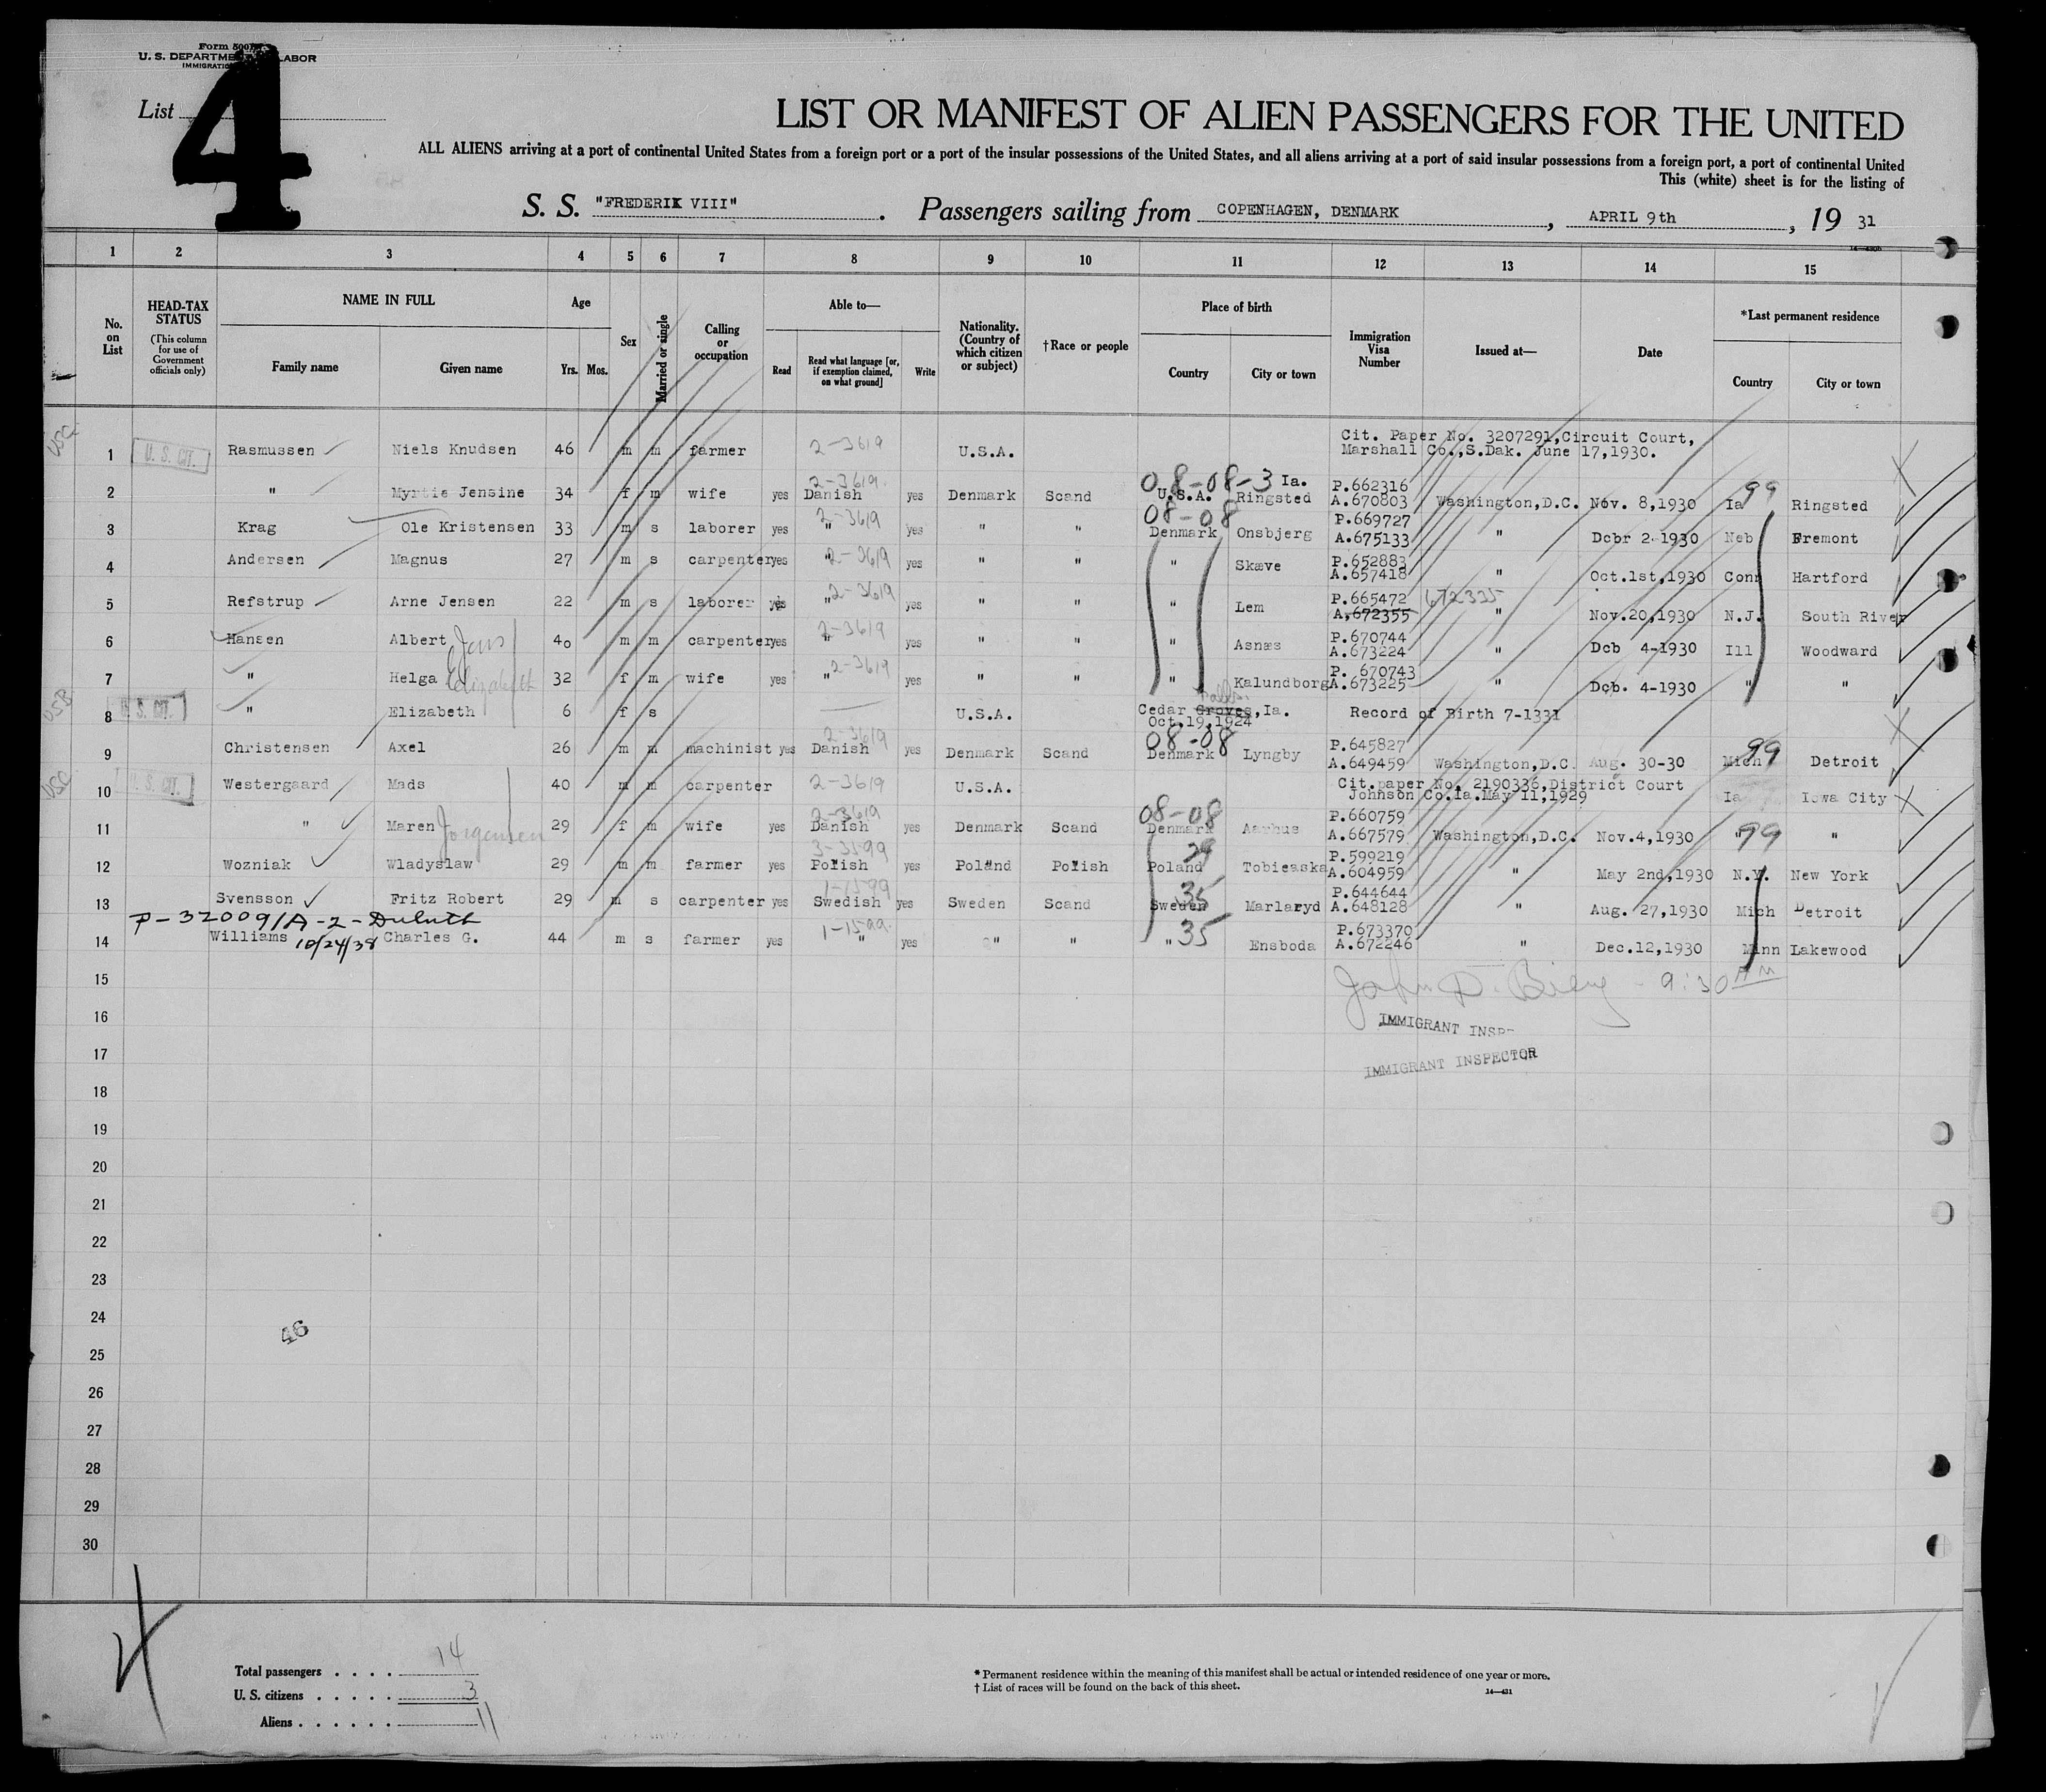 Form 500
U. S. DEPARTMENT LABOR
IMMIGRATION
List 4
LIST OR MANIFEST OF ALIEN PASSENGERS FOR THE UNITED
ALL ALIENS arriving at a port of continental United States from a foreign port or a port of the insular possessions of the United States, and all aliens arriving at a port of said insular possessions from a foreign port, a port of continental United
This (white) sheet is for the listing of
S. S. "FREDERIK VIII". Passengers sailing from COPENHAGEN, DENMARK, APRIL 9th, 19 31
1 2 3 4 5 6 7 8 9 10 11 12 13 14 15
No. on List
HEAD-TAX STATUS (This column for use of Government officials only)
NAME IN FULL Family name Given name
Age Yrs. Mos.
Sex
Married or single
Calling or occupation
Able to— Read Read what language [or, if exemption claimed, on what ground] Write
Nationality. (Country of which citizen or subject)
†Race or people
Place of birth Country City or town
Immigration Visa Number
Issued at—
Date
*Last permanent residence Country City or town
USC 1 U. S. CIT. Rasmussen Niels Knudsen 46 m m farmer 2-3619 U.S.A. Cit. Paper No. 3207291,Circuit Court, Marshall Co.,S.Dak. June 17,1930.
2 " Myrtie Jensine 34 f m wife yes 2-3619 Danish yes Denmark Scand 08-08-3 U.S.A. Ia. Ringsted P.662316 A.670803 Washington,D.C. Nov. 8,1930 Ia 99 Ringsted
3 Krag Ole Kristensen 33 m s laborer yes 2-3619 " yes " " 08-08 Denmark Onsbjerg P.669727 A.675133 " Dcbr 2-1930 Neb Fremont
4 Andersen Magnus 27 m s carpenter yes " 2-3619 yes " " " Skæve P.652883 A.657418 " Oct.1st,1930 Conn Hartford
5 Refstrup Arne Jensen 22 m s laborer yes " 2-3619 yes " " " Lem P.665472 A.672355 672325 " Nov.20,1930 N.J. South River
6 Hansen Albert Jens 4o m m carpenter yes 2-3619 " yes " " " Asnæs P.670744 A.673224 " Dcb 4-1930 Ill Woodward
7 " Helga Elizabeth 32 f m wife yes " 2-3619 yes " " " Kalundborg P. 670743 A.673225 " Dcb. 4-1930 " "
USB 8 U. S. CIT. " Elizabeth 6 f s U.S.A. Cedar Groves,Ia. Oct,19,1924 Record of Birth 7-1331
9 Christensen Axel 26 m m machinist yes 2-3619 Danish yes Denmark Scand 08-08 Denmark Lyngby P.645827 A.649459 Washington,D.C. Aug. 30-30 Mich 99 Detroit
USC 10 U. S. CIT. Westergaard Mads 40 m m carpenter 2-3619 U.S.A. Cit.paper No. 2190336,District Court Johnson Co.Ia.May 11,1929 Ia Iowa City
11 " Maren Jorgensen 29 f m wife yes 2-3619 Danish yes Denmark Scand 08-08 Denmark Aarhus P.660759 A.667579 Washington,D.C. Nov.4,1930 " 99 "
12 Wozniak Wladyslaw 29 m m farmer yes 3-3599 Polish yes Poland Polish Poland 29 Tobieaska P.599219 A.604959 " May 2nd,1930 N.Y. New York
13 Svensson Fritz Robert 29 m s carpenter yes 1-1599 Swedish yes Sweden Scand Sweden 35 Marlaryd P.644644 A.648128 " Aug. 27,1930 Mich Detroit
P-320091A-2-Duluth
14 Williams 10/24/38 Charles G. 44 m s farmer yes 1-1599 " yes " " " 35 Ensboda P.673370 A.672246 " Dec.12,1930 Minn Lakewood
15 9:30 AM
16 IMMIGRANT INSP
17 IMMIGRANT INSPECTOR
18
19
20
21
22
23
24
46
25
26
27
28
29
30
Total passengers . . . . 14
U. S. citizens . . . . . 3
Aliens . . . . . . 11
* Permanent residence within the meaning of this manifest shall be actual or intended residence of one year or more.
† List of races will be found on the back of this sheet.
14—431